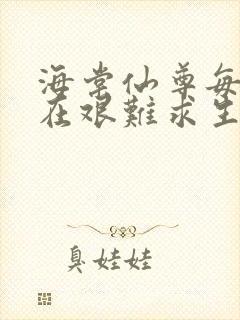 海棠仙尊每
在艰難求生
臭娃娃